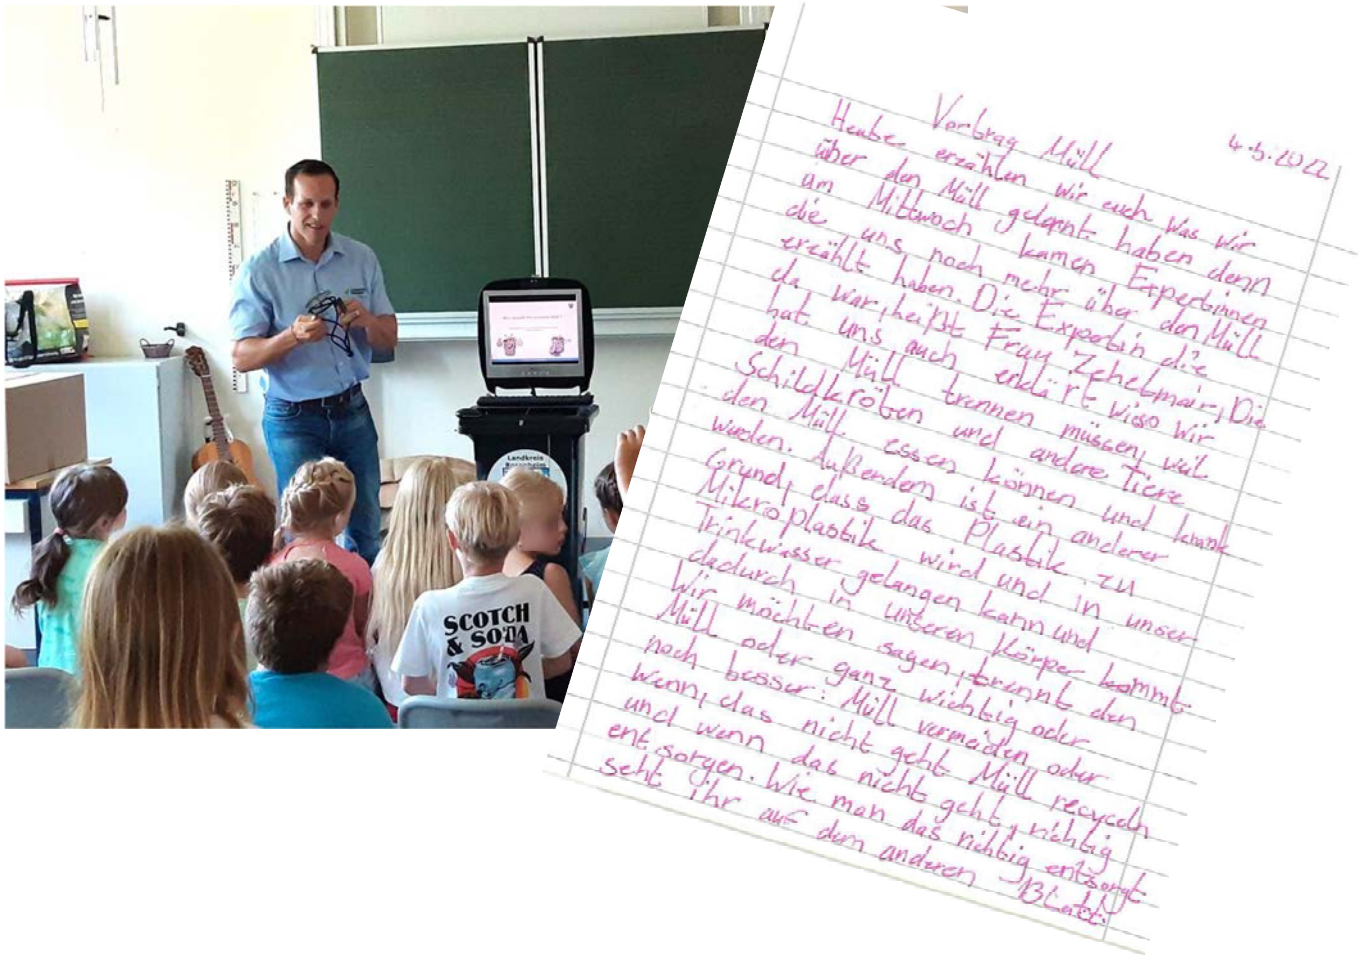 Landkreis
Rosenheim
SCOTCH
& SODA
Vortrag Müll
4.5.2022
Heute erzählen wir euch was wir
über den Müll gelernt haben denn
am Mittwoch kamen Expertinnen
die uns noch mehr über den Müll
erzählt haben. Die Expertin die
da war, heißt Frau Zehetmair, Die
hat uns auch erklärt wieso wir
den Müll trennen müssen, weil
Schildkröten und andere Tiere
den Müll essen können und krank
werden. Außerdem ist ein anderer
Grund, dass das Plastik zu
Mikroplastik wird und in unser
Trinkwasser gelangen kann und
dadurch in unseren Körper kommt.
Wir möchten sagen, trennt den
Müll oder ganz wichtig oder
noch besser: Müll vermeiden oder
wenn, das nicht geht Müll recyceln
und wenn das nicht geht, richtig
entsorgen. Wie man das richtig entsorgt
seht ihr auf dem anderen Blatt.